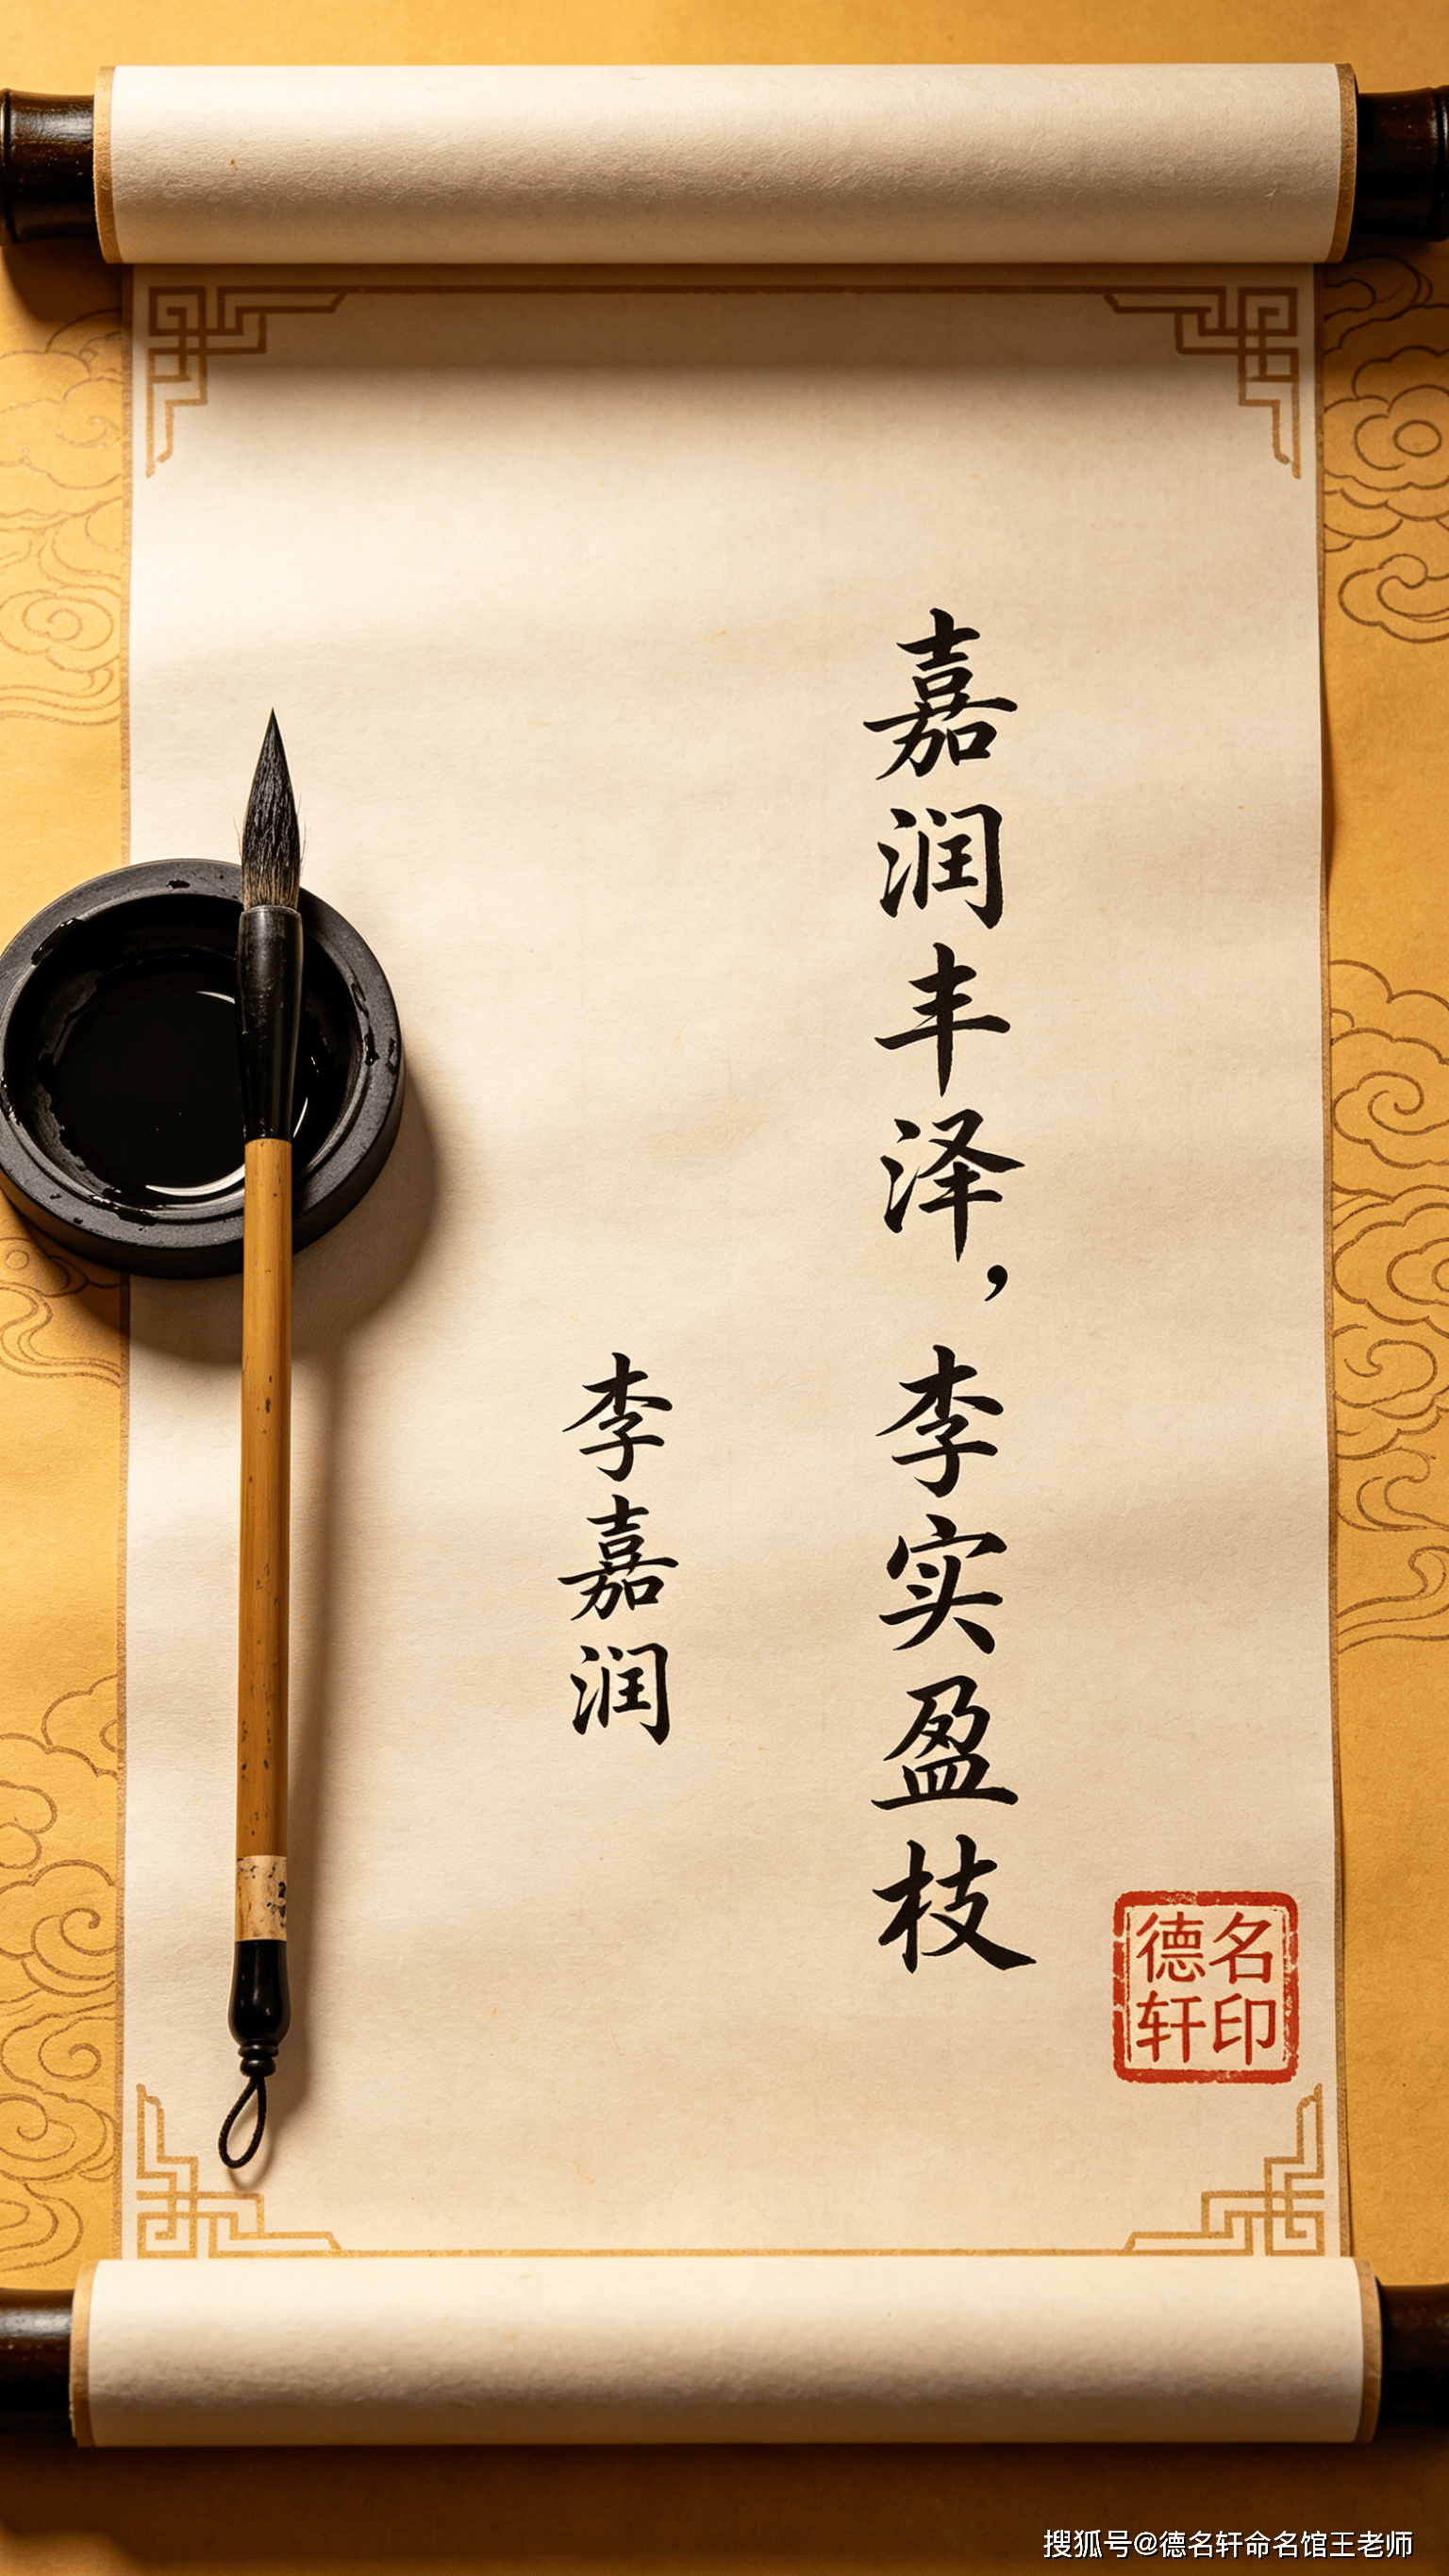 嘉润丰泽，李实盈枝
李嘉润
德名
轩印
搜狐号@德名轩命名馆王老师